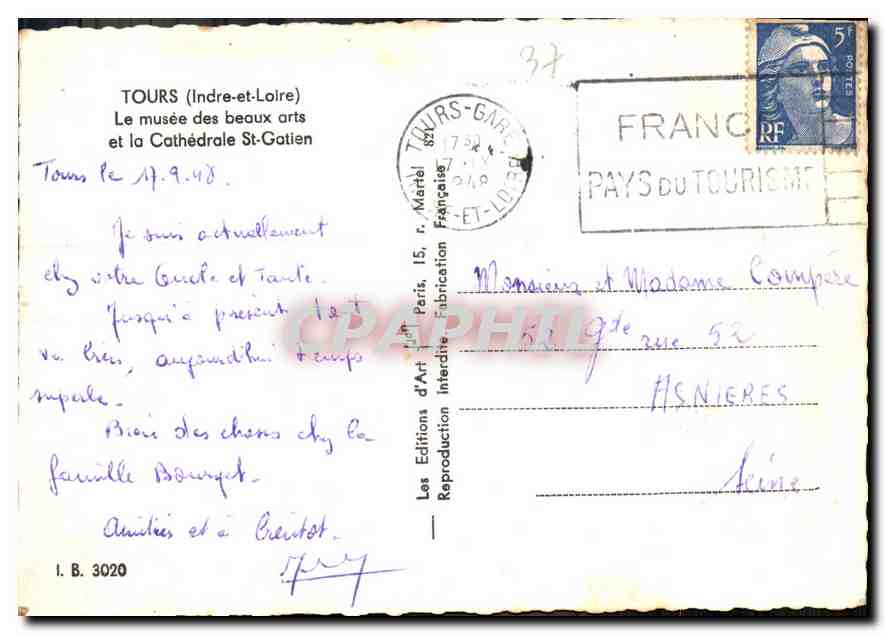 37
TOURS (Indre-et-Loire)
Le musée des beaux arts
et la Cathédrale St-Gatien
TOURS-GARE
17 30
17-IX
1948
INDRE-ET-LOIRE
FRANCE
PAYS DU TOURISME
5F
POSTES
RF
Tours le 17.9.48.
Je suis actuellement
chez votre Oncle et Tante.
Jusqu'à présent tout
va bien, aujourd'hui temps
superbe.
Bien des choses chez la
famille Bourget.
Amitiés et à bientôt.
I. B. 3020
Les Editions d'Art Paris, 15, r. Martel 821
Reproduction interdite Fabrication Française
Monsieur et Madame Compère
52 gde rue 52
ASNIERES
Seine
CPAPHIL